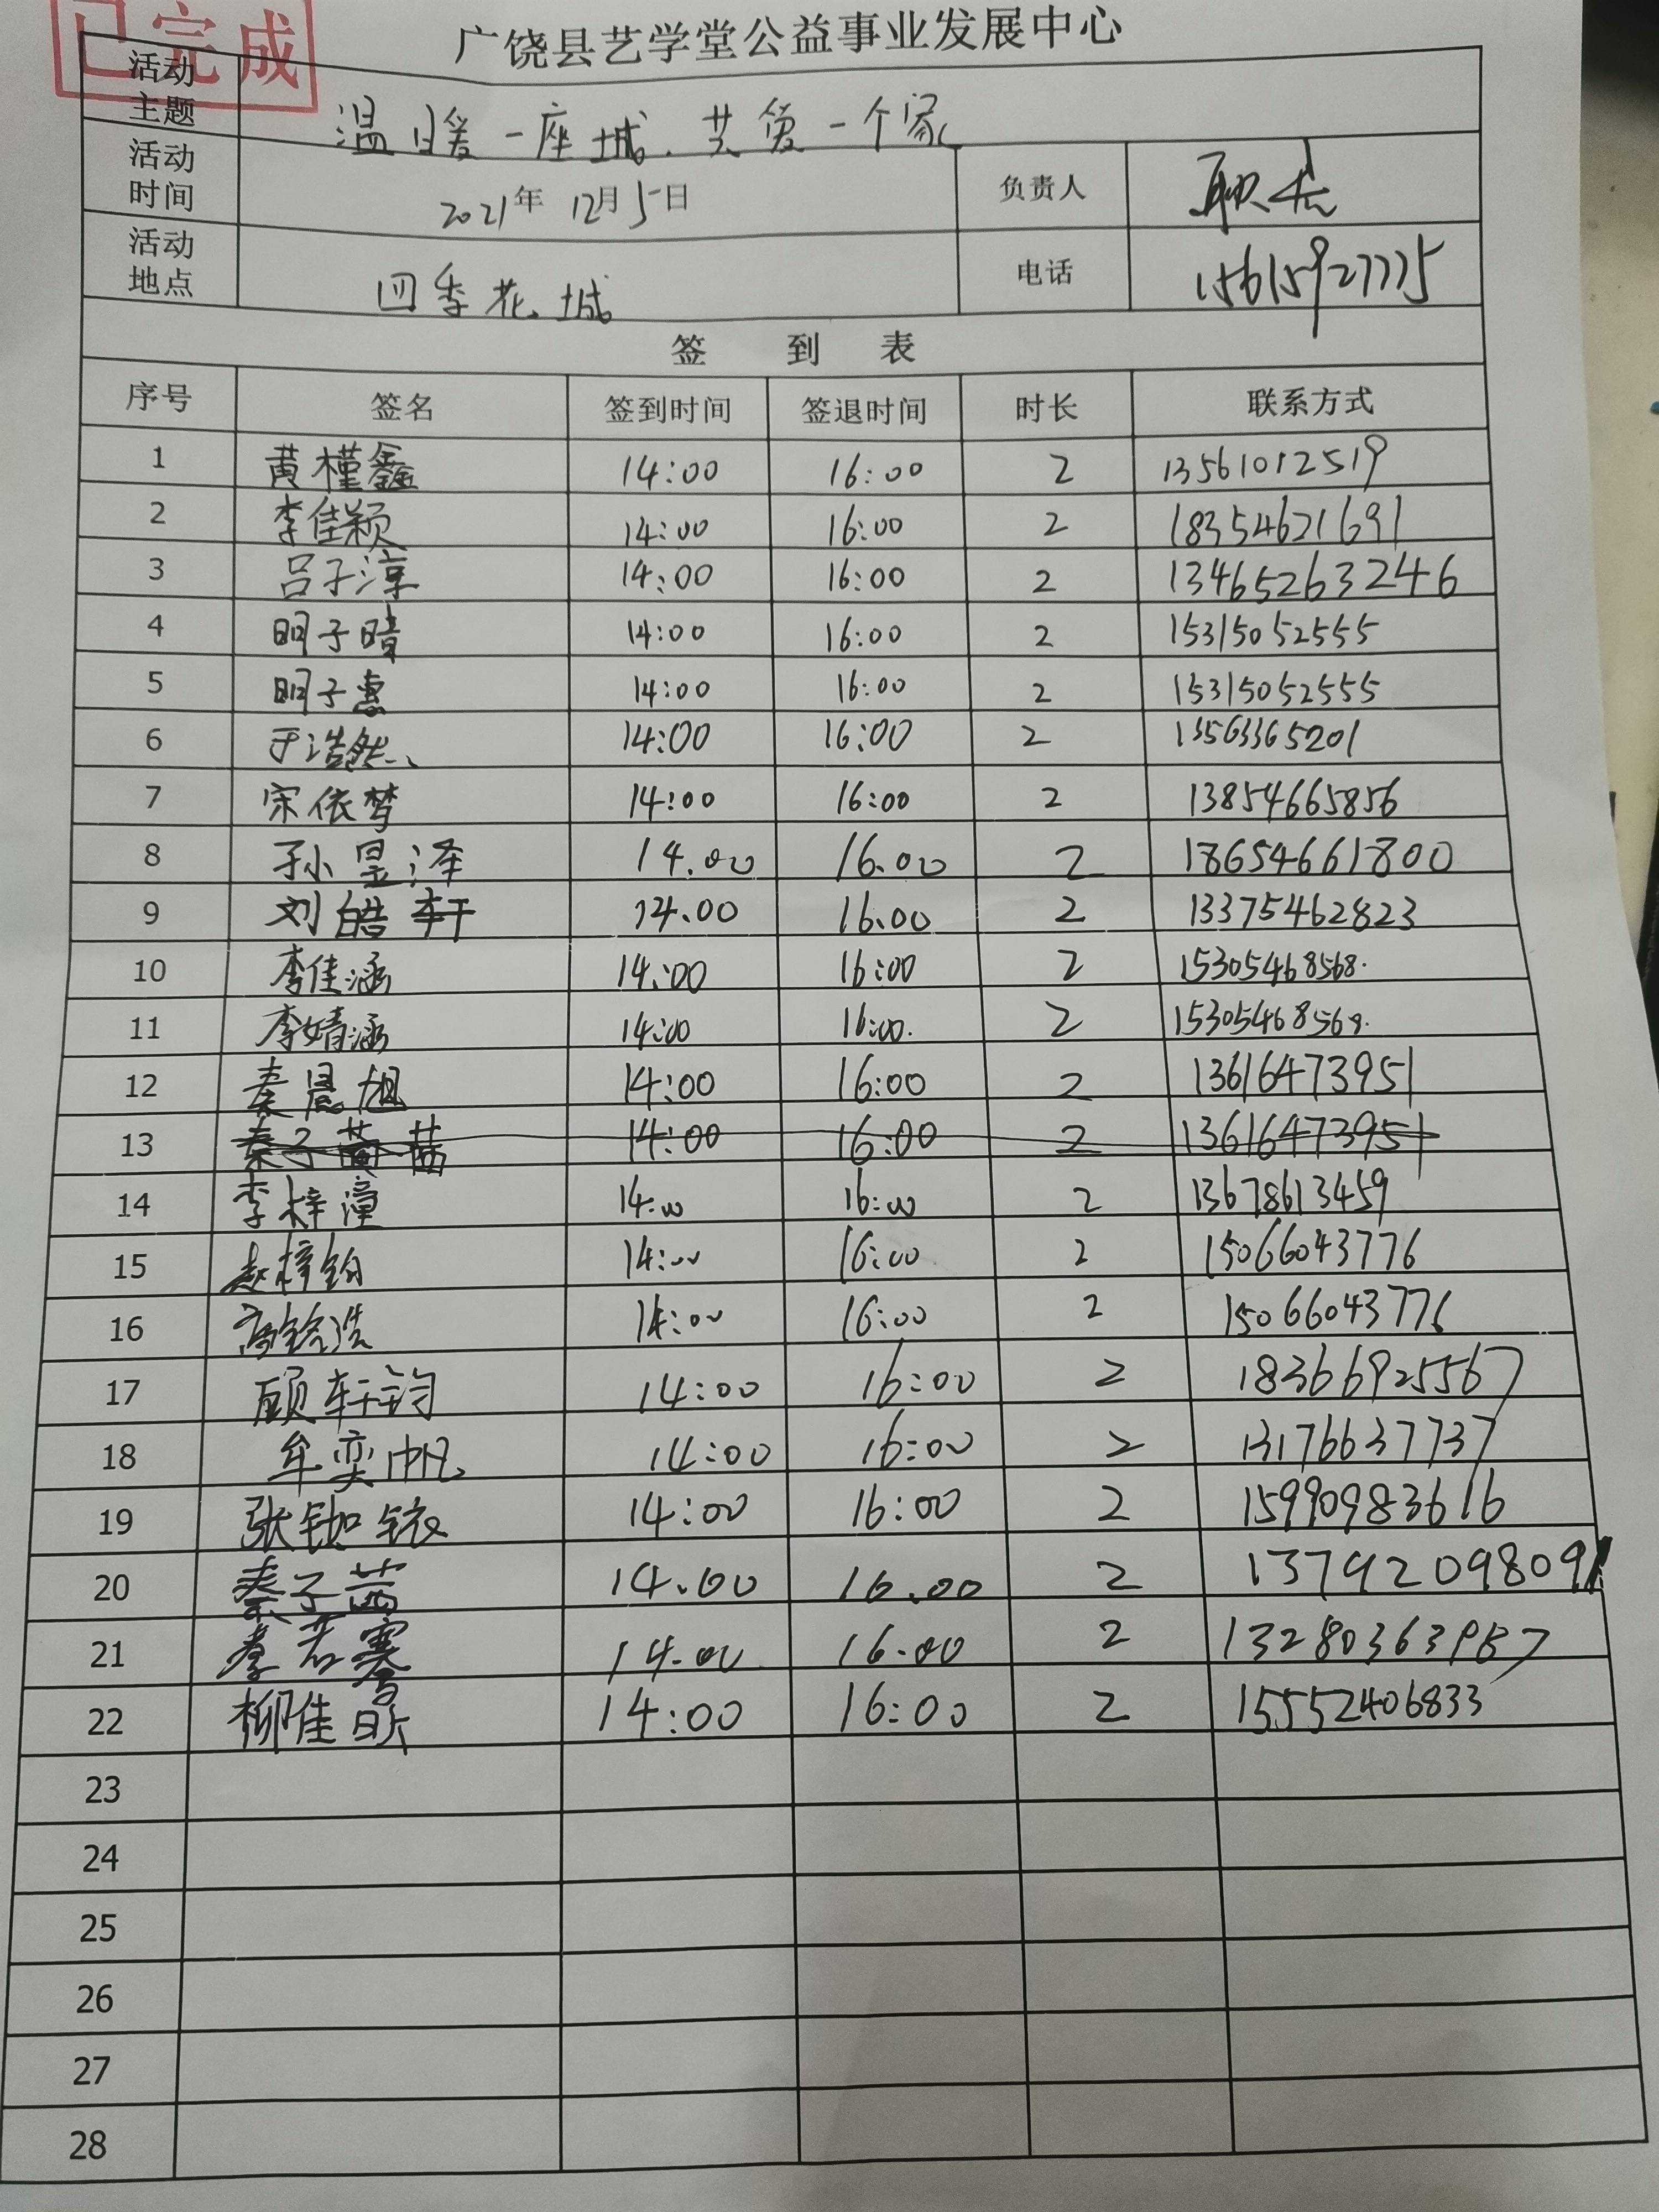 广饶县艺学堂公益事业发展中心
已完成
活动主题 温暖一座城.共筑一个家
活动时间 2021年 12月5日 负责人
活动地点 四季花城 电话 15615927775
签 到 表
序号 签名 签到时间 签退时间 时长 联系方式
1 黄槿鑫 14:00 16:00 2 13561012519
2 李佳颖 14:00 16:00 2 18354621691
3 吕子淳 14:00 16:00 2 13465263246
4 明子晴 14:00 16:00 2 15315052555
5 明子惠 14:00 16:00 2 15315052555
6 于浩然 14:00 16:00 2 13563365201
7 宋依梦 14:00 16:00 2 13854665856
8 孙昱泽 14.00 16.00 2 18654661800
9 刘皓轩 14.00 16.00 2 13375462823
10 李佳涵 14:00 16:00 2 15305468568.
11 李婧涵 14:00 16:00. 2 15305468568.
12 秦晨旭 14:00 16:00 2 13616473951
13 秦子茜 14:00 16:00 2 13616473951
14 李梓潼 14:00 16:00 2 13678613459
15 赵梓钧 14:00 16:00 2 15066043776
16 14:00 16:00 2 15066043776
17 顾轩钧 14:00 16:00 2 18366925567
18 牟奕帆 14:00 16:00 2 13176637737
19 张铷铱 14:00 16:00 2 15990983616
20 秦子茜 14.00 16.00 2 13792098091
21 李若骞 14.00 16.00 2 13280363987
22 柳佳昕 14:00 16:00 2 15552406833
23
24
25
26
27
28